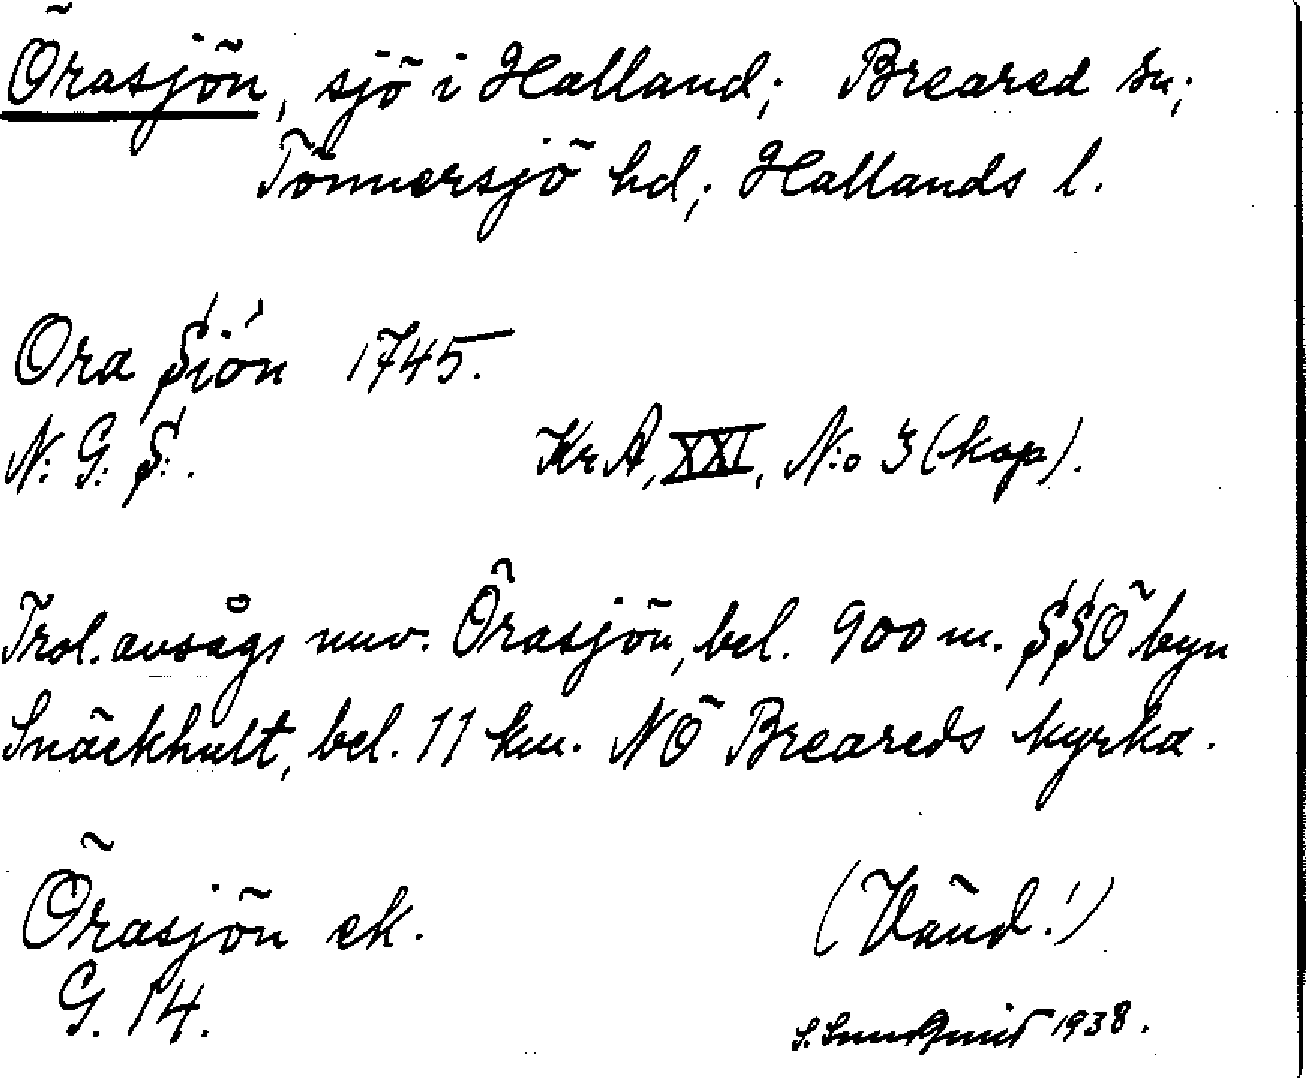 Örasjön, sjö i Halland; Breared sn;
Tönnersjö hd; Hallands l.
Ora Siön 1745.
N. G. S.
Kr A, XXI, N:o 3 (kop).
Trol. avsågs nuv. Örasjön, bel. 900 m. SSÖ byn
Snäckhult, bel. 11 km. NÖ Breareds kyrka.
Örasjön ek.
G. 14.
(Vänd!)
1938.